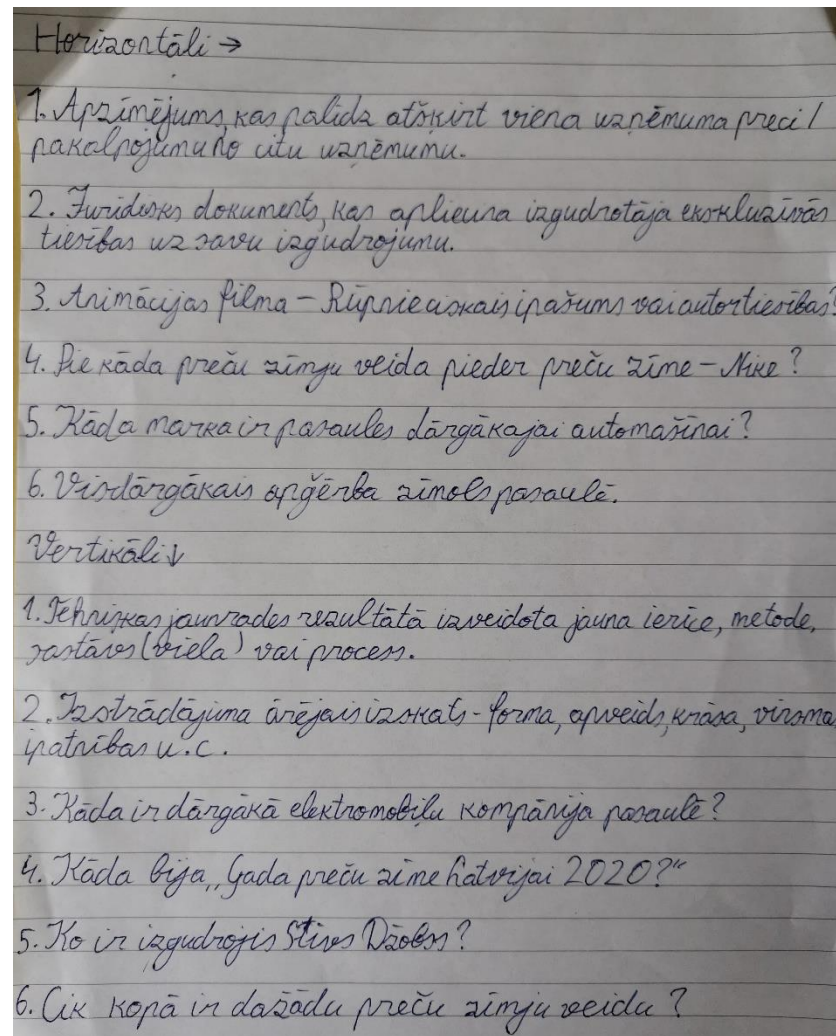 Horizontāli →
1. Apzīmējums, kas palīdz atšķirt viena uzņēmuma preci /
pakalpojumu no citu uzņēmumu.
2. Juridisks dokuments, kas apliecina izgudrotāja ekskluzīvās
tiesības uz savu izgudrojumu.
3. Animācijas filma – Rūpnieciskais īpašums vai autortiesības?
4. Pie kāda preču zīmju veida pieder preču zīme – Nike?
5. Kāda marka ir pasaules dārgākajai automašīnai?
6. Visdārgākais apģērba zīmols pasaulē.
Vertikāli ↓
1. Tehniskas jaunrades rezultātā izveidota jauna ierīce, metode,
sastāvs (viela) vai process.
2. Izstrādājuma ārējais izskats - forma, apveids, krāsa, virsma
īpatnības u.c.
3. Kāda ir dārgākā elektromobiļu kompānija pasaulē?
4. Kāda bija „Gada preču zīme Latvijai 2020?"
5. Ko ir izgudrojis Stīvs Džobss?
6. Cik kopā ir dažādu preču zīmju veidu?